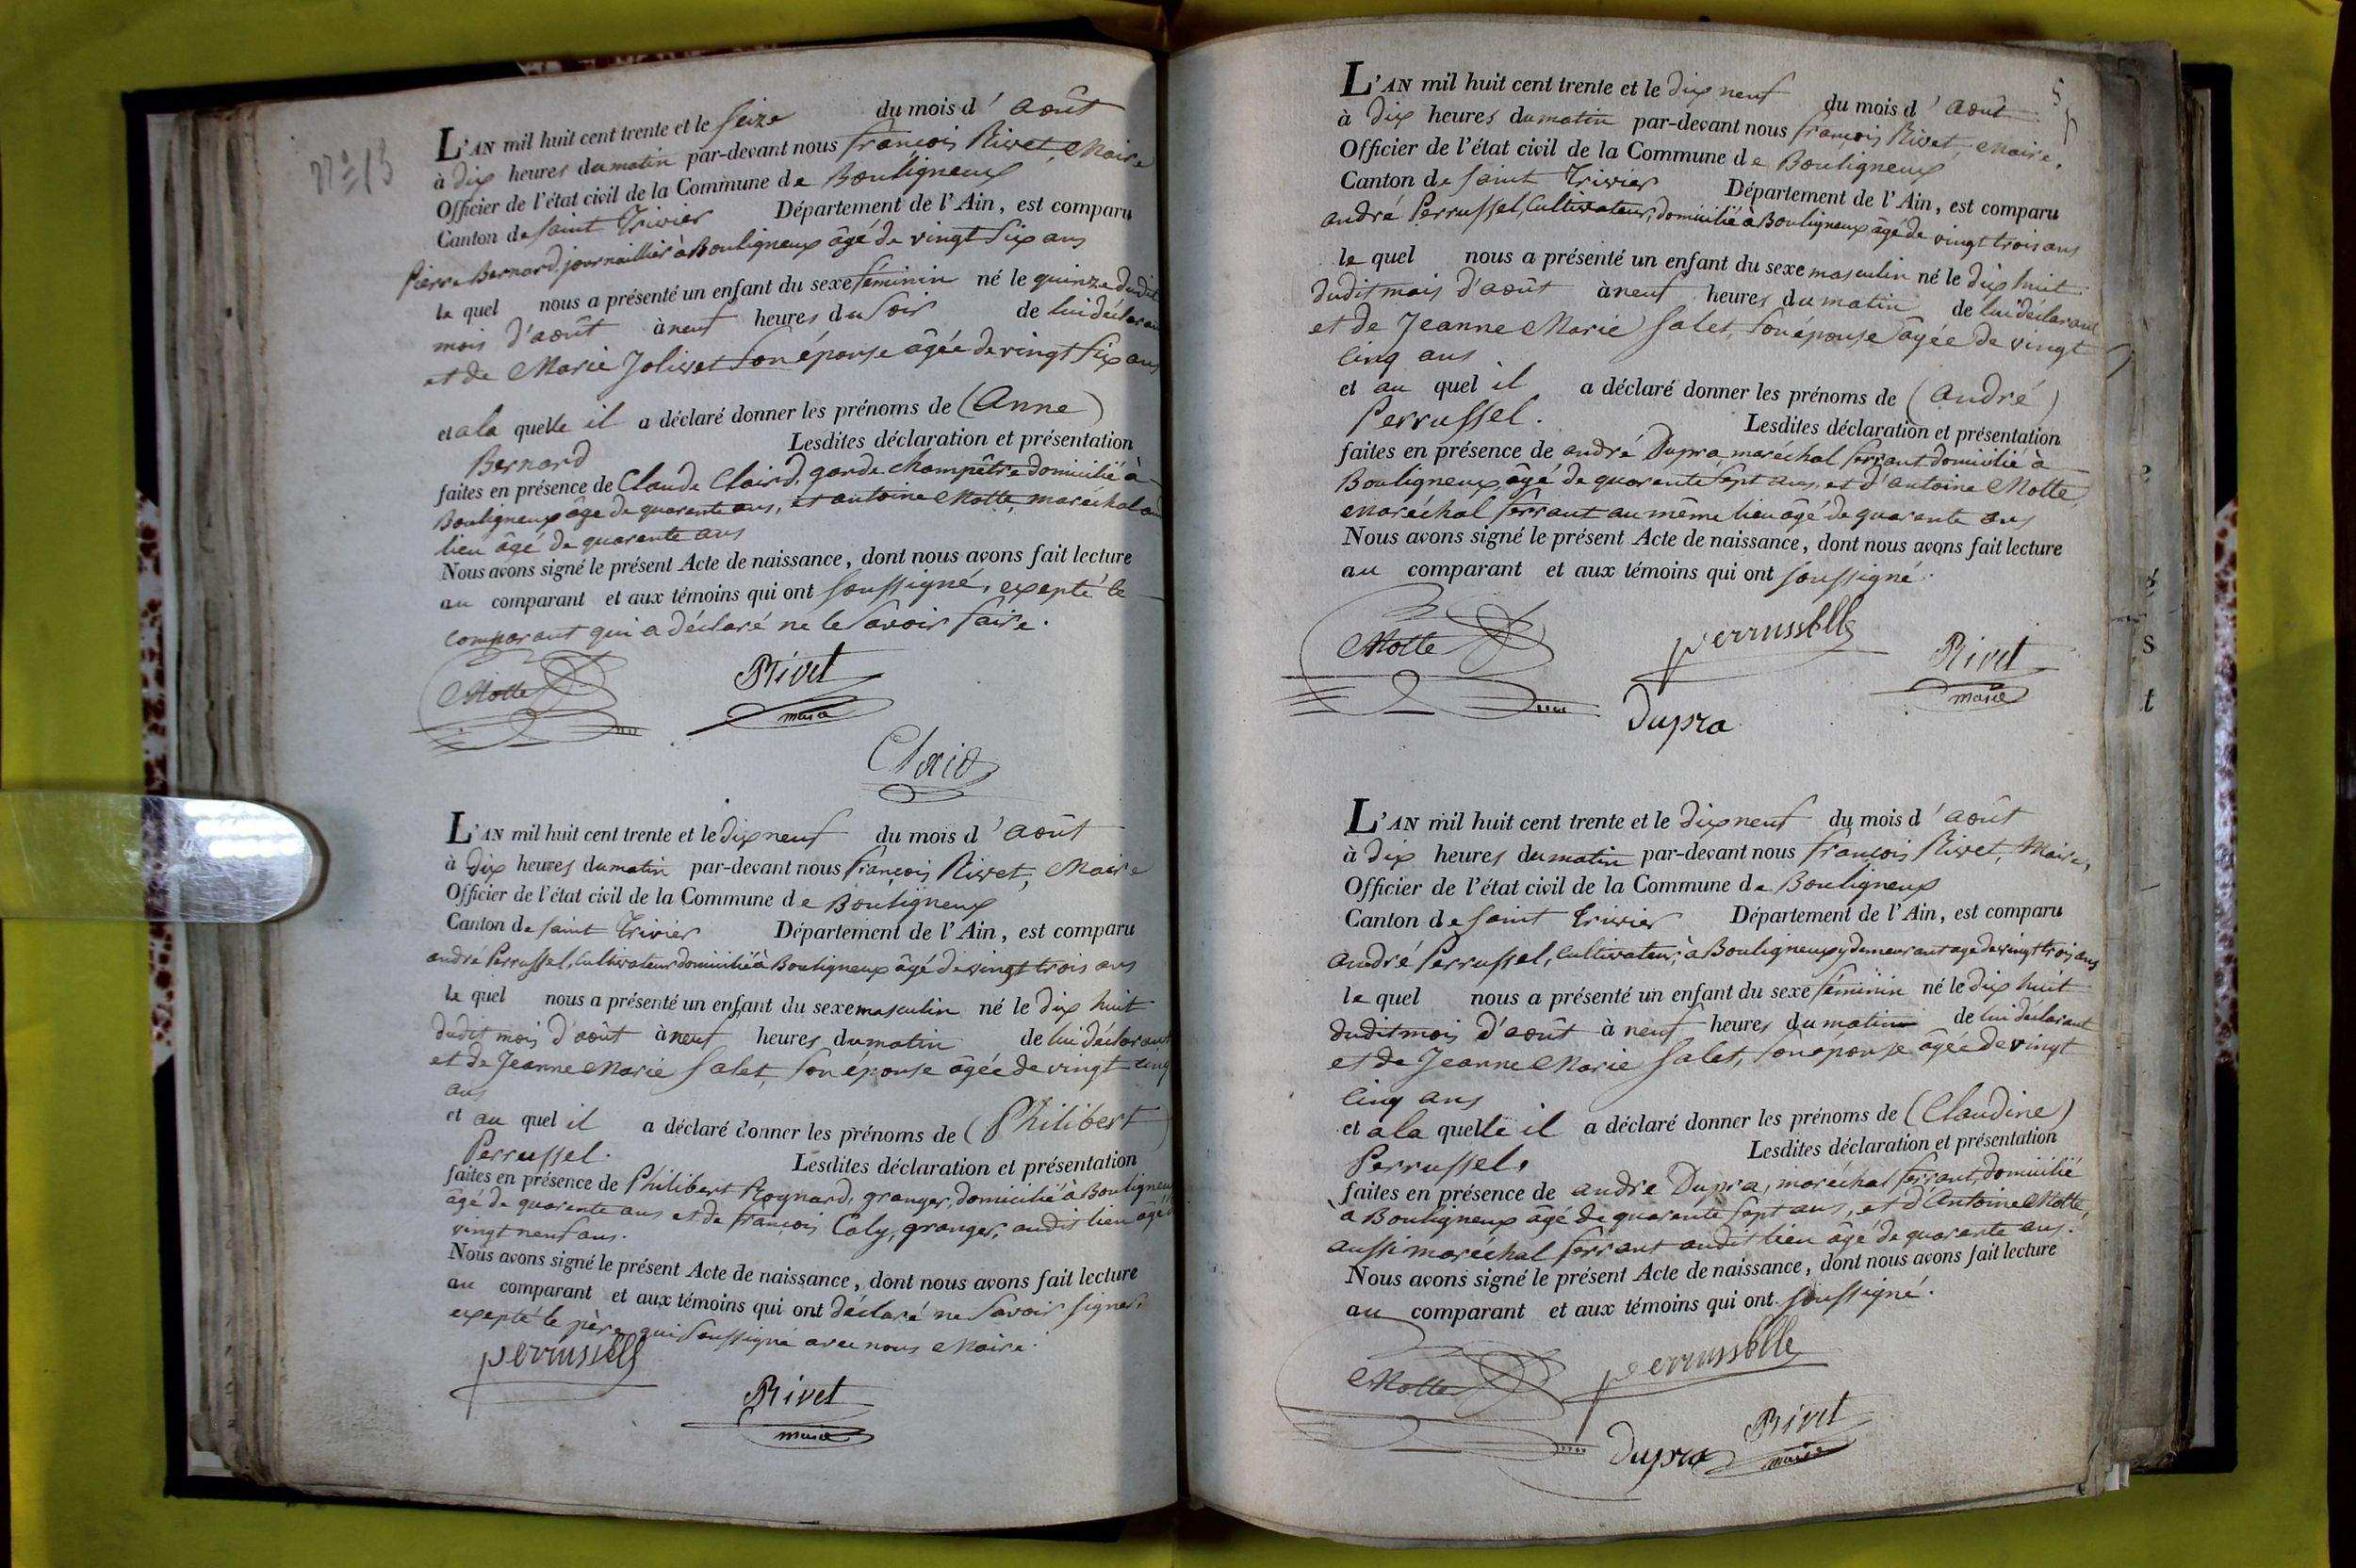 n° 13
L'AN mil huit cent trente et le seize du mois d'août
à dix heures du matin par-devant nous françois Rivet, Maire
Officier de l'état civil de la Commune de Bouligneux
Canton de saint Trivier Département de l'Ain, est comparu
Pierre Bernard, journaillier à Bouligneux âgé de vingt six ans
le quel nous a présenté un enfant du sexe féminin né le quinze dudit
mois d'août à neuf heures du soir de lui déclarant
et de Marie Jolivet son épouse âgée de vingt six ans
et a la quelle il a déclaré donner les prénoms de (Anne)
Bernard Lesdites déclaration et présentation
faites en présence de Claude Claird, garde champêtre domicilié à
Bouligneux âgé de quarante ans, et antoine Motte, maréchal au
lieu âgé de quarante ans
Nous avons signé le présent Acte de naissance, dont nous avons fait lecture
au comparant et aux témoins qui ont soussigné, expepté le
comparant qui a déclaré ne le savoir faire.
Motte Rivet
maire
Claird
L'AN mil huit cent trente et le dix neuf du mois d'août
à dix heures du matin par-devant nous françois Rivet, Maire
Officier de l'état civil de la Commune de Bouligneux
Canton de saint Trivier Département de l'Ain, est comparu
andré Perrussel, Cultivateur domicilié à Bouligneux âgé de vingt trois ans
le quel nous a présenté un enfant du sexe masculin né le dix huit
dudit mois d'août à neuf heures du matin de lui déclarant
et de Jeanne Marie Salet, son épouse âgée de vingt cinq
ans
et au quel il a déclaré donner les prénoms de (Philibert)
Perrussel. Lesdites déclaration et présentation
faites en présence de Philibert Roynard, granger, domicilié à Bouligneux
âgé de quarante ans et de françois Caly, granger, audit lieu âgé
vingt neuf ans.
Nous avons signé le présent Acte de naissance, dont nous avons fait lecture
au comparant et aux témoins qui ont déclaré ne savoir signer,
expepté le père qui soussigné avec nous Maire.
perrusselle
Rivet
maire
L'AN mil huit cent trente et le dix neuf du mois d'août
à dix heures du matin par-devant nous françois Rivet, Maire,
Officier de l'état civil de la Commune de Bouligneux
Canton de saint Trivier Département de l'Ain, est comparu
andré Perrussel, Cultivateur, domicilié à Bouligneux âgé de vingt trois ans
le quel nous a présenté un enfant du sexe masculin né le dix huit
dudit mois d'août à neuf heures du matin de lui déclarant
et de Jeanne Marie Salet, son épouse âgée de vingt
cinq ans
et au quel il a déclaré donner les prénoms de (andré)
Perrussel. Lesdites déclaration et présentation
faites en présence de andré Dupra maréchal ferrant domicilié à
Bouligneux âgé de quarante sept ans, et d'antoine Motte,
Maréchal ferrant au même lieu âgé de quarante ans
Nous avons signé le présent Acte de naissance, dont nous avons fait lecture
au comparant et aux témoins qui ont soussigné.
Motte perrusselle Rivet
maire
Dupra
L'AN mil huit cent trente et le dix neuf du mois d'août
à dix heures du matin par-devant nous françois Rivet, Maire,
Officier de l'état civil de la Commune de Bouligneux
Canton de saint Trivier Département de l'Ain, est comparu
André Perrussel, Cultivateur, à Bouligneux y demeurant age de vingt trois ans
le quel nous a présenté un enfant du sexe féminin né le dix huit
dudit mois d'août à neuf heures du matin de lui déclarant
et de Jeanne Marie Salet, son épouse âgée de vingt
cinq ans
et a la quelle il a déclaré donner les prénoms de (Claudine)
Perrussel, Lesdites déclaration et présentation
faites en présence de andre Dupra, maréchal ferrant, domicilié
à Bouligneux âgé de quarante sept ans, et d'Antoine Motte,
aussi maréchal ferrant audit lieu âgé de quarante ans.
Nous avons signé le présent Acte de naissance, dont nous avons fait lecture
au comparant et aux témoins qui ont soussigné.
Motte perrusselle
Dupra Rivet
maire